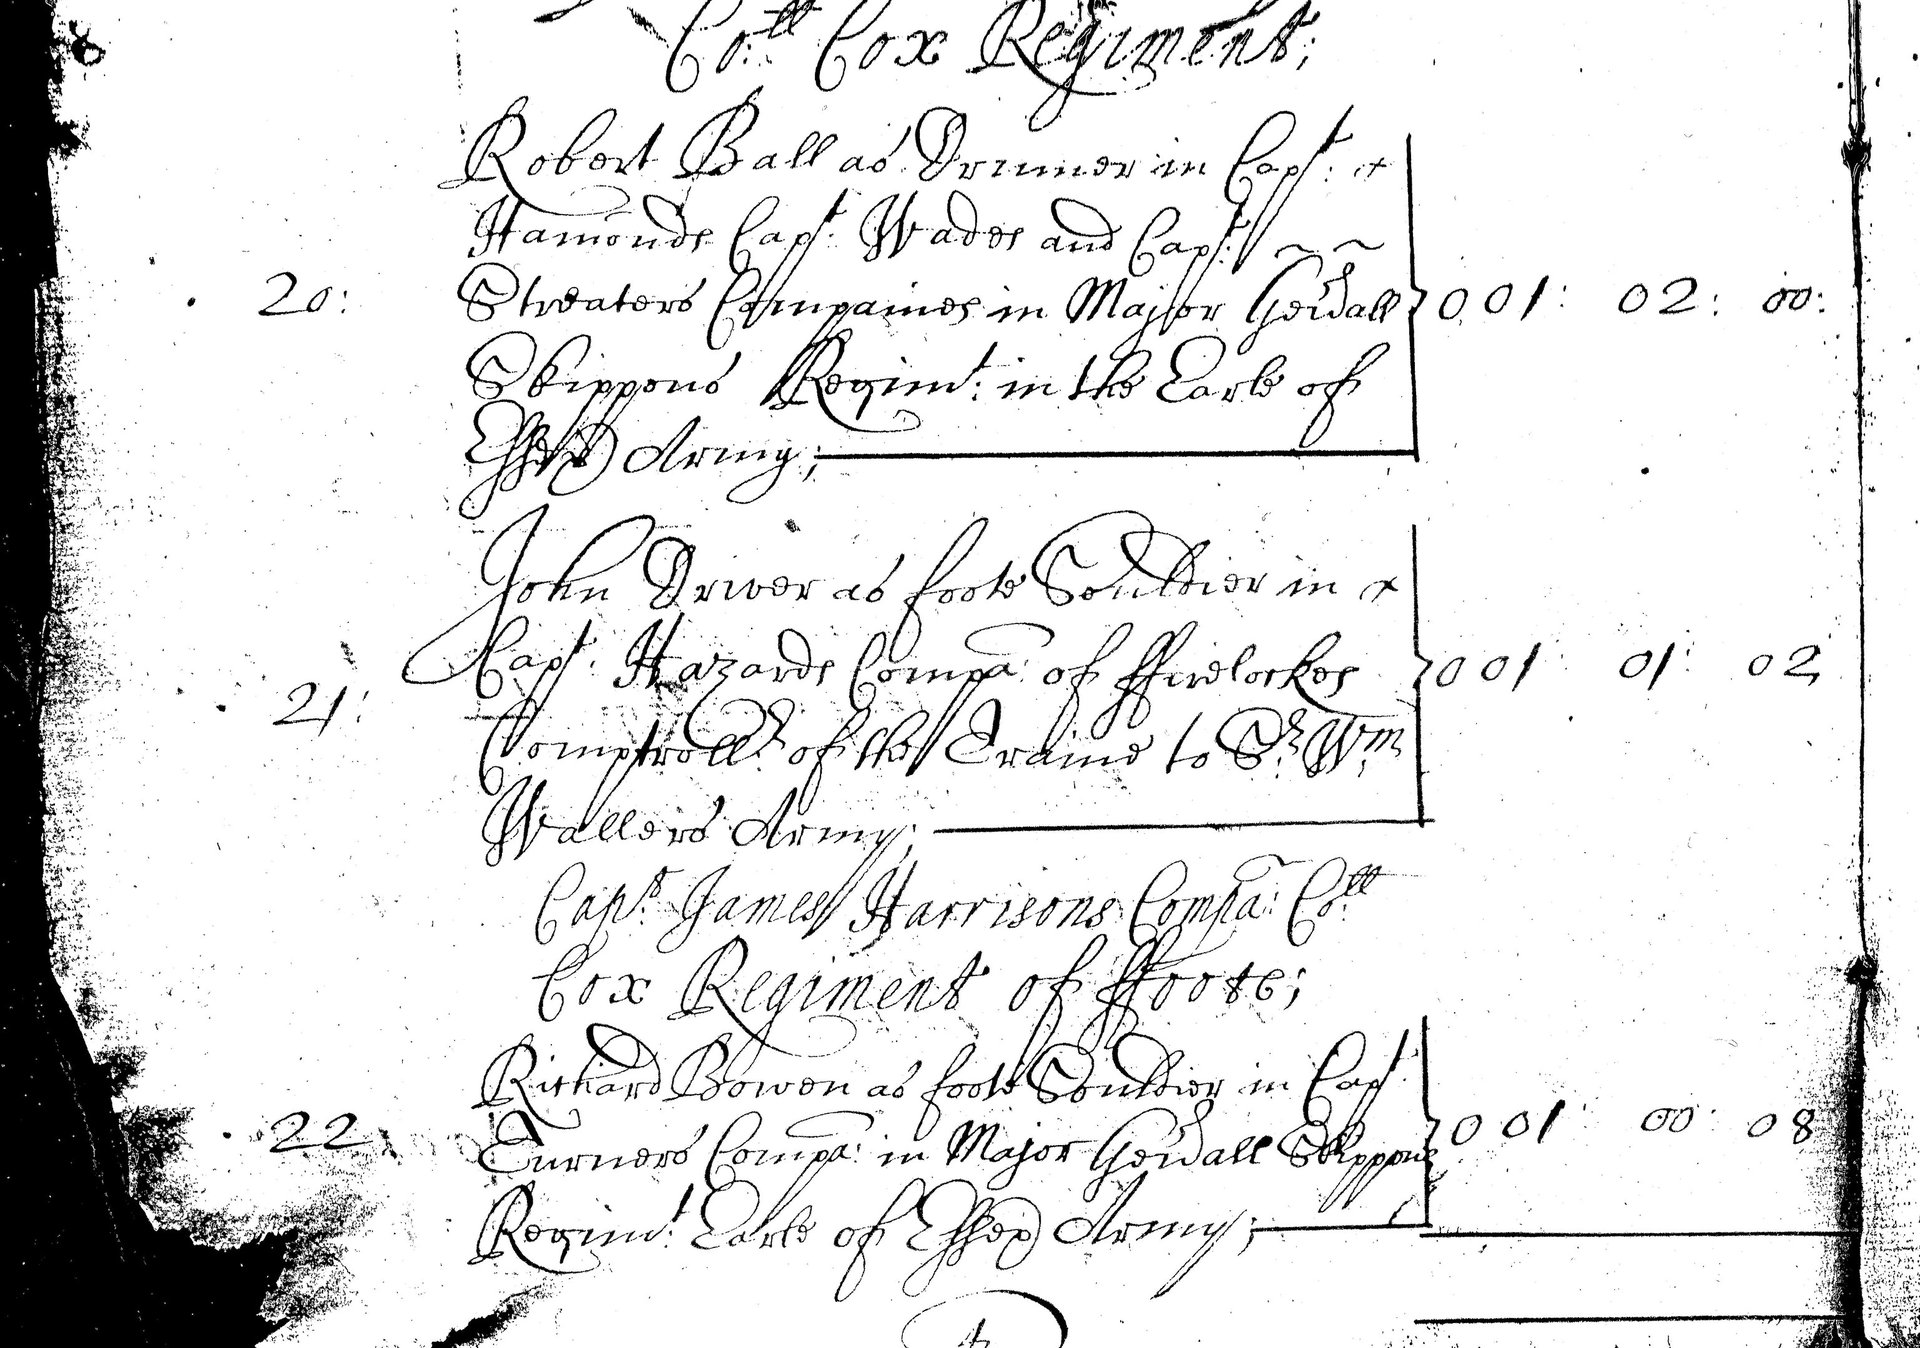 8
Co:ll Cox Regiment;
Robert Ball as Drumer in Capt: +
Hamonds Capt: Wades and Capt:
20: Streaters Companies in Major Gen̄all 001: 02: 00:
Skippons Regimt: in the Earle of
Essex Army;
John Driver as foote Souldier in +
Capt: Hazards Compa: of ffirelockes 001: 01: 02
21: Comptrollr: of the Traine to Sr: Wm:
Wallers Army;
Capt: James Harrisons Compa: Coll:
Cox Regiment of ffoote;
Richard Bowen as foote Souldier in Capt:
22 Turners Compa: in Major Gen̄all Skippons 001: 00: 08
Regimt: Earle of Essex Army;